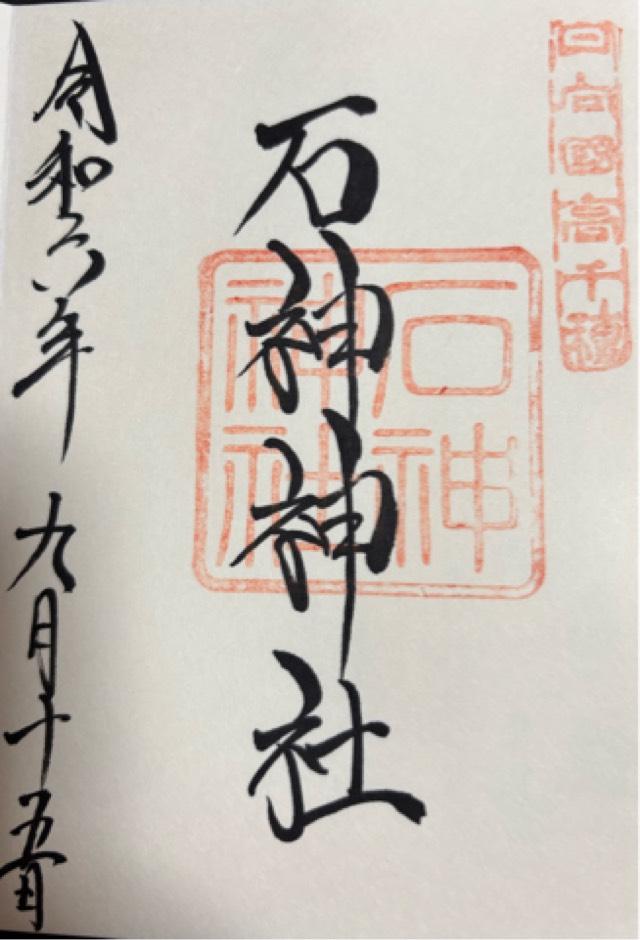 日向國高千穂
石神神社
石神神社
令和六年九月十五日